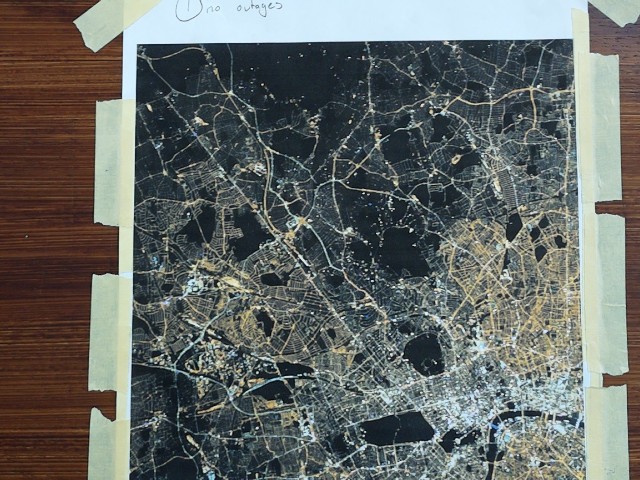 ① no outages